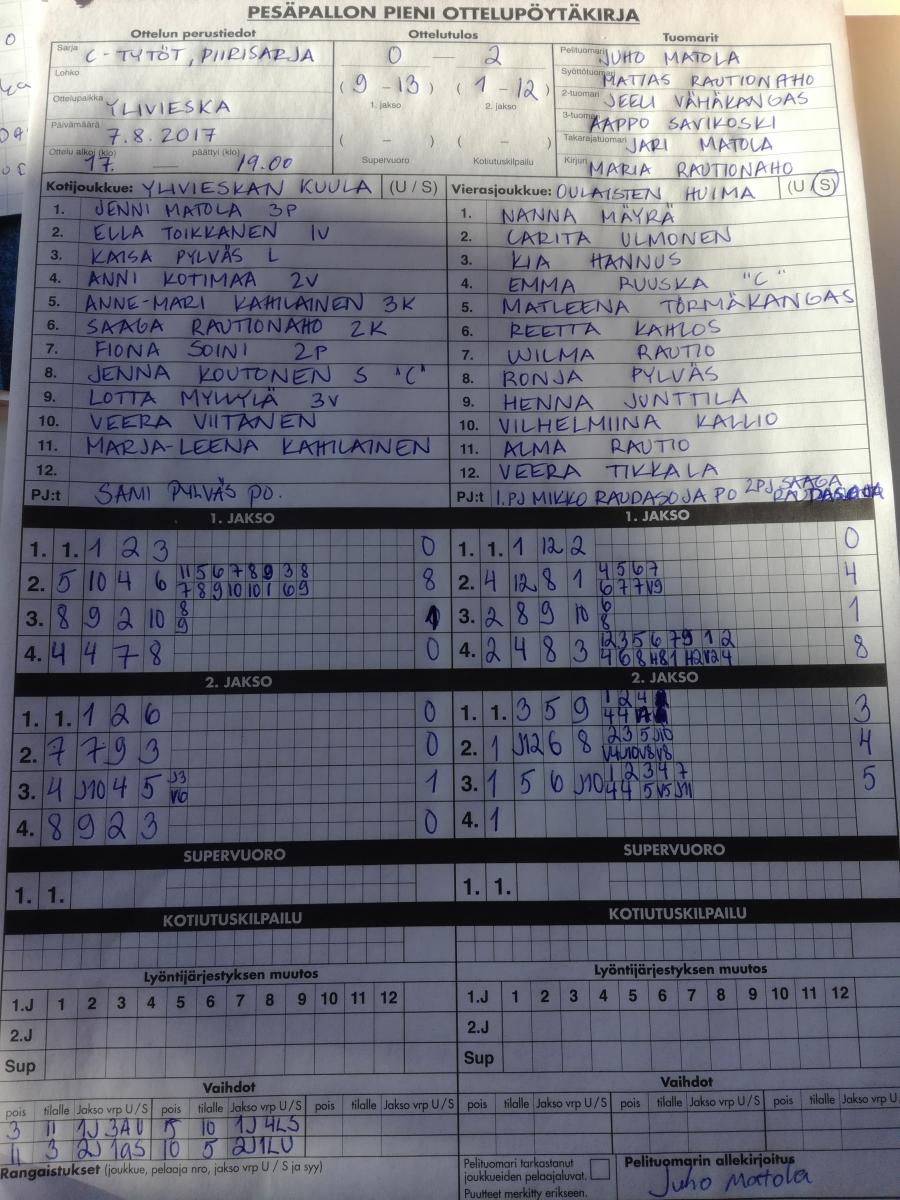 PESÄPALLON PIENI OTTELUPÖYTÄKIRJA
Ottelun perustiedot Ottelutulos Tuomarit
Sarja C-TYTÖT, PIIRISARJA 0 — 2 Pelituomari JUHO MATOLA
Lohko (9 - 13) (1 - 12) Syöttötuomari MATIAS RAUTIONAHO
1. jakso 2. jakso
Ottelupaikka YLIVIESKA 2-tuomari JEELI VÄHÄKANGAS
Päivämäärä 7.8.2017 ( – ) ( – ) 3-tuomari AAPPO SAVIKOSKI
Takarajatuomari JARI MATOLA
Ottelu alkoi (klo) 17. — päättyi (klo) 19.00 Supervuoro Kotiutuskilpailu Kirjuri MARIA RAUTIONAHO
Kotijoukkue: YLIVIESKAN KUULA (U / S) Vierasjoukkue: OULAISTEN HUIMA (U / S)
1. JENNI MATOLA 3P 1. NANNA MÄYRÄ
2. ELLA TOIKKANEN 1V 2. CARITA ULMONEN
3. KAISA PYLVÄS L 3. KIA HANNUS
4. ANNI KOTIMAA 2V 4. EMMA RUUSKA "C"
5. ANNE-MARI KAHILAINEN 3K 5. MATLEENA TÖRMÄKANGAS
6. SAAGA RAUTIONAHO 2K 6. REETTA KAHLOS
7. FIONA SOINI 2P 7. WILMA RAUTIO
8. JENNA KOUTONEN S "C" 8. RONJA PYLVÄS
9. LOTTA MYLLYLÄ 3V 9. HENNA JUNTTILA
10. VEERA VIITANEN 10. VILHELMIINA KALLIO
11. MARJA-LEENA KAHILAINEN 11. ALMA RAUTIO
12. 12. VEERA TIKKALA
PJ:t SAMI PYLVÄS PO. PJ:t 1.PJ MIKKO RAUDASOJA PO 2PJ SAAGA
1. JAKSO 1. JAKSO
1. 1. 1 2 3 0 1. 1. 1 12 2 0
2. 5 10 4 6 11 5 6 7 8 9 3 8 8 2. 4 12 8 1 4 5 6 7 4
7 8 9 10 10 1 6 9 6 7 7 V9
3. 8 9 2 10 8 1 3. 2 8 9 10 6 1
9 8
4. 4 4 7 8 0 4. 2 4 8 3 12 3 5 6 7 9 1 2 8
2. JAKSO 2. JAKSO
1. 1. 1 2 6 0 1. 1. 3 5 9 1 2 4 3
2. 7 7 9 3 0 2. 1 J12 6 8 2 3 5 J10 4
V4 J10 V8 V8
3. 4 J10 4 5 J3 1 3. 1 5 6 J10 1 2 3 4 7 5
V6 4 4 5 V5 J11
4. 8 9 2 3 0 4. 1
SUPERVUORO SUPERVUORO
1. 1. 1. 1.
KOTIUTUSKILPAILU KOTIUTUSKILPAILU
Lyöntijärjestyksen muutos Lyöntijärjestyksen muutos
1.J 1 2 3 4 5 6 7 8 9 10 11 12 1.J 1 2 3 4 5 6 7 8 9 10 11 12
2.J 2.J
Sup Sup
Vaihdot Vaihdot
pois tilalle Jakso vrp U / S pois tilalle Jakso vrp U / S pois tilalle Jakso vrp U / S pois tilalle Jakso vrp U / S pois tilalle Jakso vrp U / S pois tilalle Jakso vrp U
3 11 1J 3AU 5 10 1J 4LS
11 3 2J 1QS 10 5 2J1LU
Rangaistukset (joukkue, pelaaja nro, jakso vrp U / S ja syy) Pelituomari tarkastanut
joukkueiden pelaajaluvat. Pelituomarin allekirjoitus
Puutteet merkitty erikseen. Juho Matola